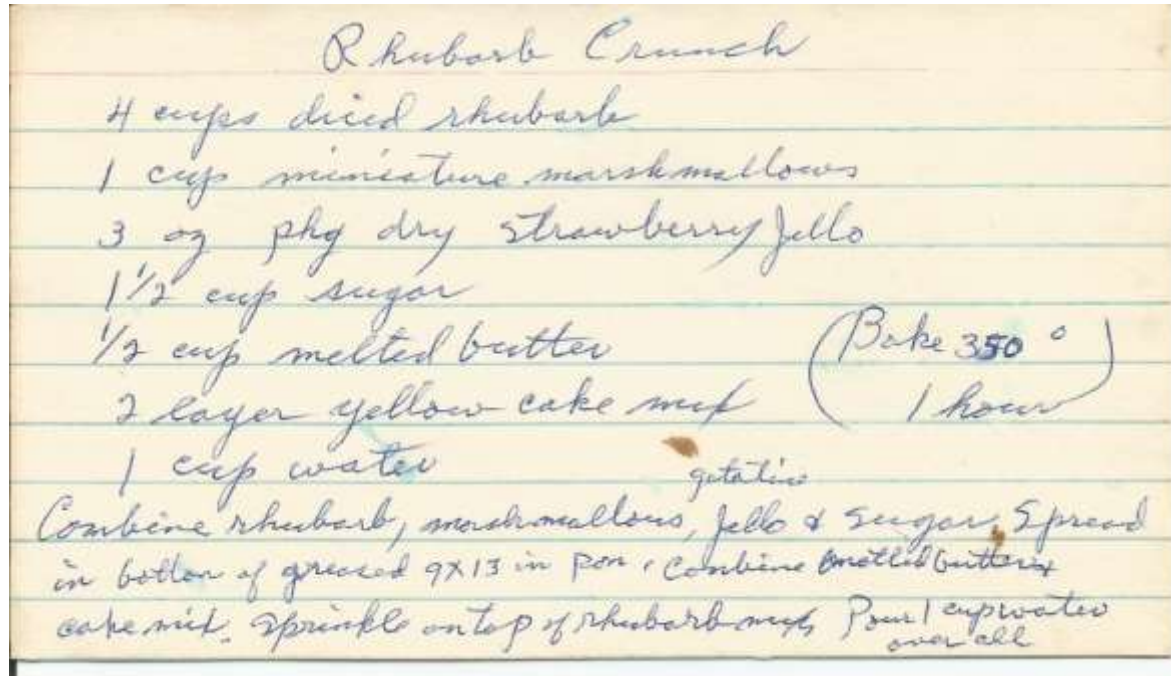 Rhubarb Crunch
4 cups diced rhubarb
1 cup miniature marshmallows
3 oz pkg dry strawberry Jello
1 1/2 cup sugar
1/2 cup melted butter
(Bake 350°
2 layer yellow cake mix
1 hour)
1 cup water
gelatin
Combine rhubarb, marshmallows, Jello & sugar. Spread
in bottom of greased 9X13 in pan. Combine melted butter &
cake mix. Sprinkle on top of rhubarb mix, Pour 1 cup water
over all